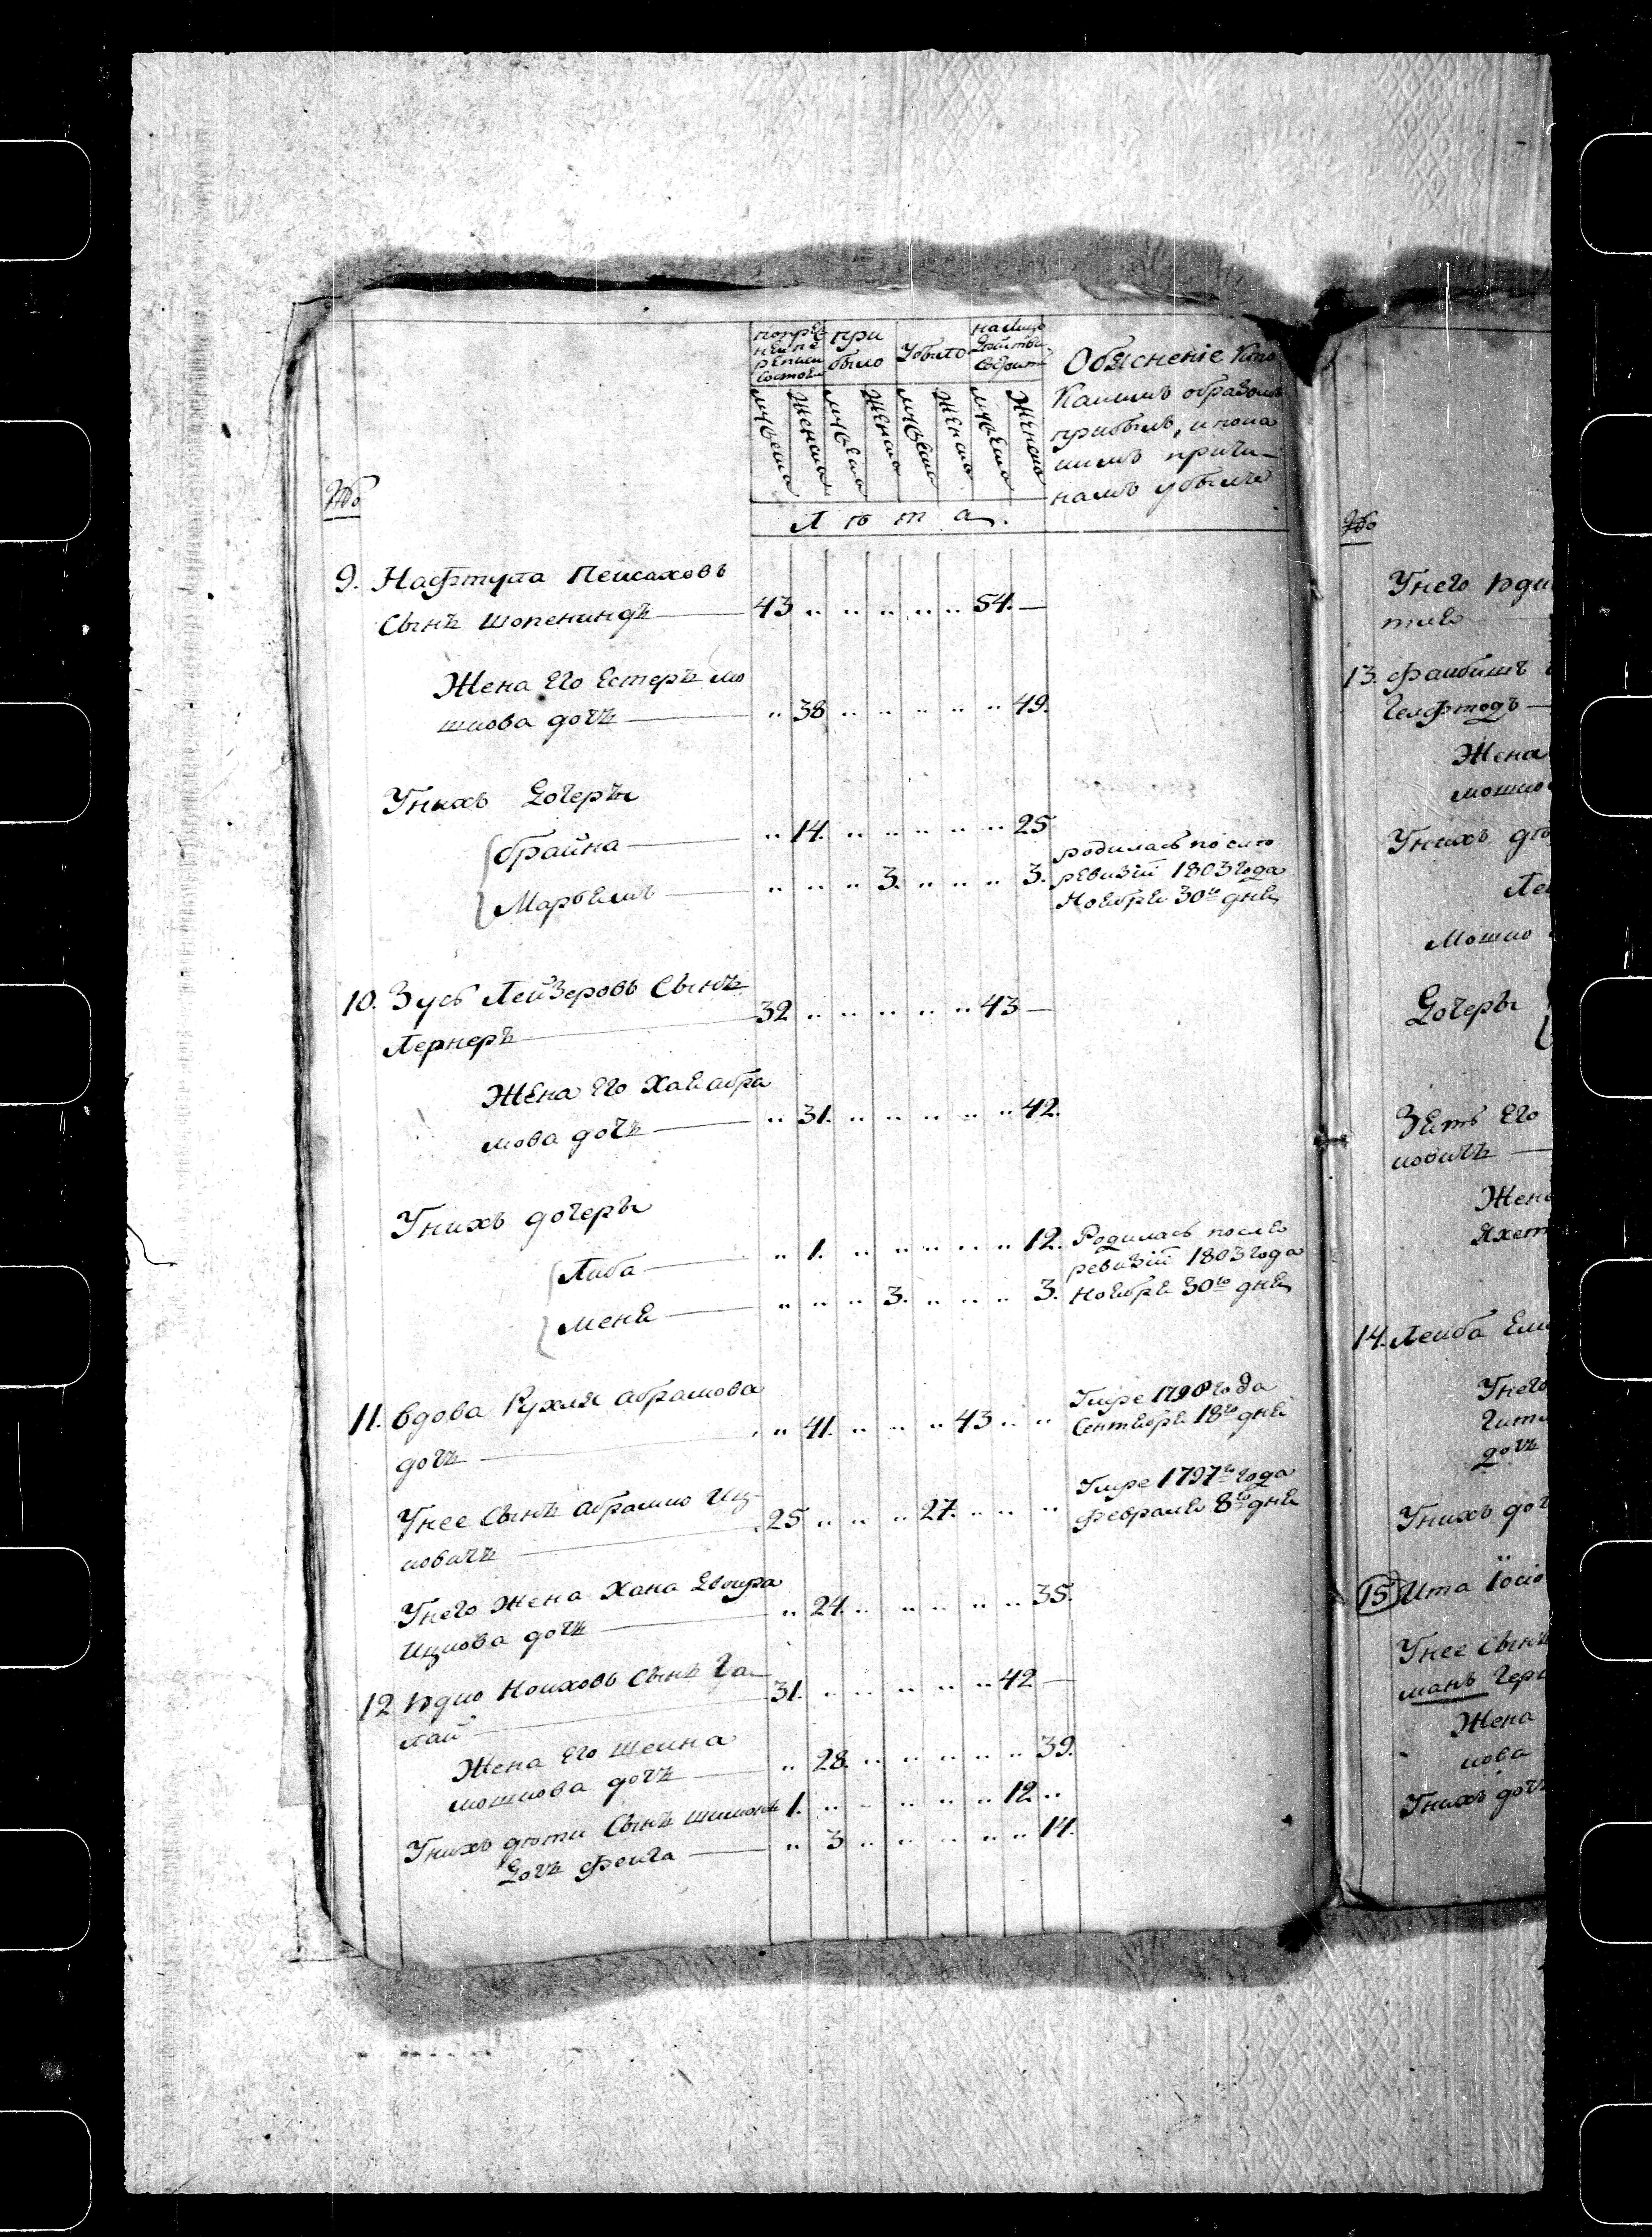 №
попреж
ней пе
реписи
состоял
при
было
Убыло
на лицо
действи
состоит
Обясненіе кто
Какимъ образомъ
прибылъ, и по ка
кимъ причи-
намъ убылъ
мужеска женска мужеска женска мужеска женска мужеска женска
Л ѣ т а.
9. Нафтула Пейсаховъ
Сынъ Шопениндъ 43 .. .. .. .. .. 54. —
Жена Его Естеръ мо
шкова дочь .. 38 .. .. .. .. .. 49.
Унихъ Дочеры
Брайна .. 14. .. .. .. .. .. 25
родилась после
ревизіи 1803 года
Марьемъ .. .. .. 3. .. .. .. 3.
Ноября 30го дня
10. Зусь Лейзеровъ Сынъ
Лернеръ 32 .. .. .. .. .. 43 —
Жена Его Хая абра
мова дочь .. 31. .. .. .. .. .. 42.
Унихъ дочеры
Либа .. 1. .. .. .. .. .. 12.
Родилась после
ревизіи 1803 года
Меня .. .. .. 3. .. .. .. 3.
Ноября 30го дня
11. Вдова Рухля абрамова
дочь .. 41. .. .. .. 43 .. ..
Умре 1798 года
Сентября 18го дня
Унее Сынъ абрамко Иц-
ковичъ 25 .. .. .. 27. .. .. ..
Умре 1797го года
Февраля 8го дня
Унего Жена Хана Двойра
Ицкова дочь .. 24. .. .. .. .. .. 35.
12 Юдко Ноиховъ Сынъ Га-
лай 31. .. .. .. .. .. 42 —
Жена Его Шейна
мошкова дочь .. 28. .. .. .. .. .. 39.
Унихъ дѣти Сынъ Шимонъ 1. .. .. .. .. .. 12 ..
Дочь Фейга .. 3 .. .. .. .. .. 14.
№
Унего Юдк
13. Файбишъ
Гелфтодъ
Жена
мошко
Унихъ дѣ
Ле
Мошко
Дочеры
Зять Его
ковичъ
Жена
Яхет
14. Лейба Ели
Унего
Гит
дочь
Унихъ доч
15 Ита Іоси
Унее Сынъ
манъ Гер
Жена
кова
Унихъ доч